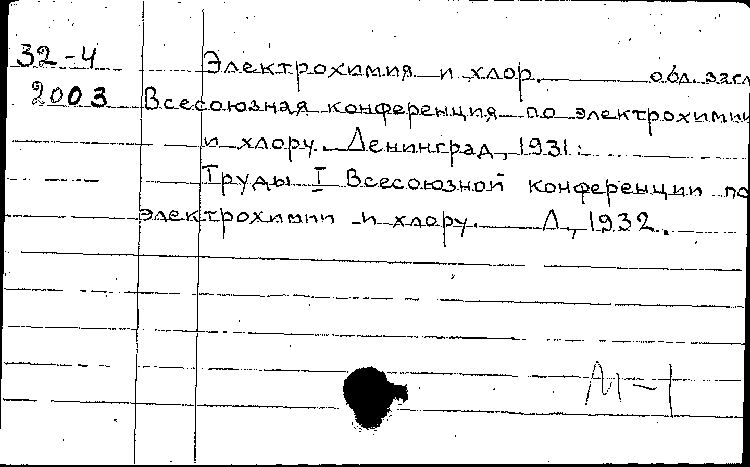 32-4 Электрохимия и хлор. обл. загл
2003 Всесоюзная конференция по электрохимии
и хлору. Ленинград, 1931.
Труды I Всесоюзной конференции по
электрохимии и хлору. Л., 1932.
М-1